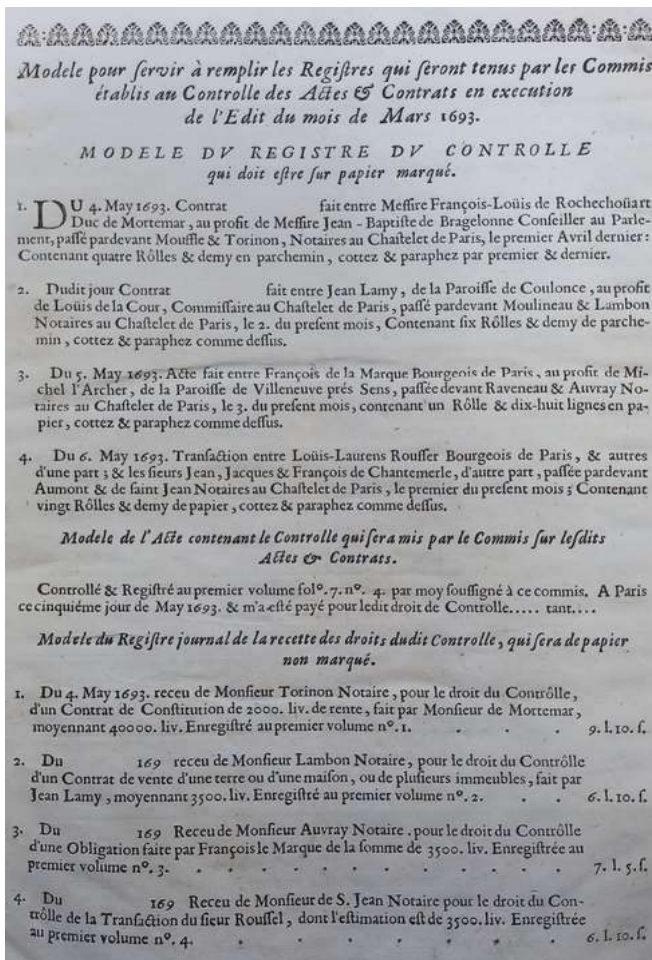 Modele pour ſervir à remplir les Regiſtres qui ſeront tenus par les Commis
établis au Controlle des Actes & Contrats en execution
de l'Edit du mois de Mars 1693.
MODELE DV REGISTRE DV CONTROLLE
qui doit eſtre ſur papier marqué.
1. DU 4. May 1693. Contrat fait entre Meſſire François-Loüis de Rochechoüart
Duc de Mortemar, au profit de Meſſire Jean-Baptiſte de Bragelonne Conſeiller au Parle-
ment, paſſé pardevant Mouffle & Torinon, Notaires au Chaſtelet de Paris, le premier Avril dernier:
Contenant quatre Rôlles & demy en parchemin, cottez & paraphez par premier & dernier.
2. Dudit jour Contrat fait entre Jean Lamy, de la Paroiſſe de Coulonce, au profit
de Loüis de la Cour, Commiſſaire au Chaſtelet de Paris, paſſé pardevant Moulineau & Lambon
Notaires au Chaſtelet de Paris, le 2. du preſent mois, Contenant ſix Rôlles & demy de parche-
min, cottez & paraphez comme deſſus.
3. Du 5. May 1693. Acte fait entre François de la Marque Bourgeois de Paris, au profit de Mi-
chel l'Archer, de la Paroiſſe de Villeneuve prés Sens, paſſée devant Raveneau & Auvray No-
taires au Chaſtelet de Paris, le 3. du preſent mois, contenant un Rôlle & dix-huit lignes en pa-
pier, cottez & paraphez comme deſſus.
4. Du 6. May 1693. Tranſaction entre Loüis-Laurens Rouſſer Bourgeois de Paris, & autres
d'une part; & les ſieurs Jean, Jacques & François de Chantemerle, d'autre part, paſſée pardevant
Aumont & de ſaint Jean Notaires au Chaſtelet de Paris, le premier du preſent mois; Contenant
vingt Rôlles & demy de papier, cottez & paraphez comme deſſus.
Modele de l'Acte contenant le Controlle qui ſera mis par le Commis ſur leſdits
Actes & Contrats.
Controllé & Regiſtré au premier volume folº. 7. nº. 4. par moy ſouſſigné à ce commis. A Paris
ce cinquiéme jour de May 1693. & m'a eſté payé pour ledit droit de Controlle..... tant....
Modele du Regiſtre journal de la recette des droits dudit Controlle, qui ſera de papier
non marqué.
1. Du 4. May 1693. receu de Monſieur Torinon Notaire, pour le droit du Contrôlle,
d'un Contrat de Conſtitution de 2000. liv. de rente, fait par Monſieur de Mortemar,
moyennant 40000. liv. Enregiſtré au premier volume nº. 1. . . . 9. l. 10. ſ.
2. Du 169 receu de Monſieur Lambon Notaire, pour le droit du Contrôlle
d'un Contrat de vente d'une terre ou d'une maiſon, ou de pluſieurs immeubles, fait par
Jean Lamy, moyennant 3500. liv. Enregiſtré au premier volume nº. 2. . . 6. l. 10. ſ.
3. Du 169 Receu de Monſieur Auvray Notaire, pour le droit du Contrôlle
d'une Obligation faite par François le Marque de la ſomme de 3500. liv. Enregiſtrée au
premier volume nº. 3. . . . . . . . . . . 7. l. 5. ſ.
4. Du 169 Receu de Monſieur de S. Jean Notaire pour le droit du Con-
trôlle de la Tranſaction du ſieur Rouſſel, dont l'eſtimation eſt de 3500. liv. Enregiſtrée
au premier volume nº. 4. . . . . . . . 6. l. 10. ſ.